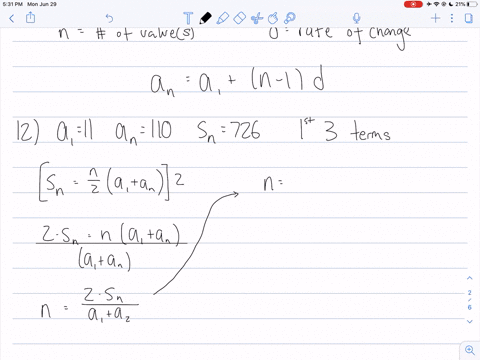 5:31 PM Mon Jun 29
21%
n = # of value(s) d = rate of change
aₙ = a₁ + (n-1) d
12) a₁=11 aₙ=110 Sₙ=726 1st 3 terms
[Sₙ = n/2 (a₁+aₙ)] 2
n =
2·Sₙ = n (a₁+aₙ)
(a₁+aₙ)
n = 2·Sₙ / a₁+a₂
2
6